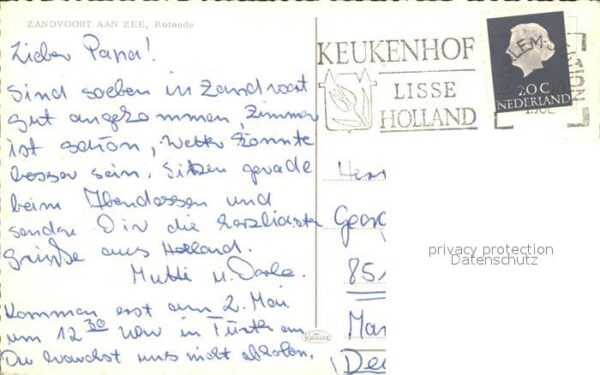 ZANDVOORT AAN ZEE, Rotonde
Lieber Papa!
Sind soeben in Zandvoort
gut angekommen, Zimmer
ist schön, Wetter könnte
besser sein. Sitzen gerade
beim Abendessen und
senden Dir die herzlichsten
Grüße aus Holland.
Mutti u.
Kommen erst am 2. Mai
um 12 30 Uhr in Fürth an
Du brauchst uns nicht abholen.
KEUKENHOF
LISSE
HOLLAND
LEM
20 C
NEDERLAND
Herr
Georg
85
KRUGER
privacy protection
Datenschutz